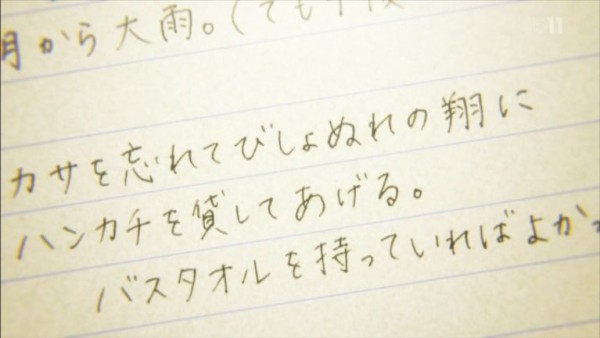 から大雨。(
11
カサを忘れてびしょぬれの翔に
ハンカチを貸してあげる。
バスタオルを持っていればよかっ